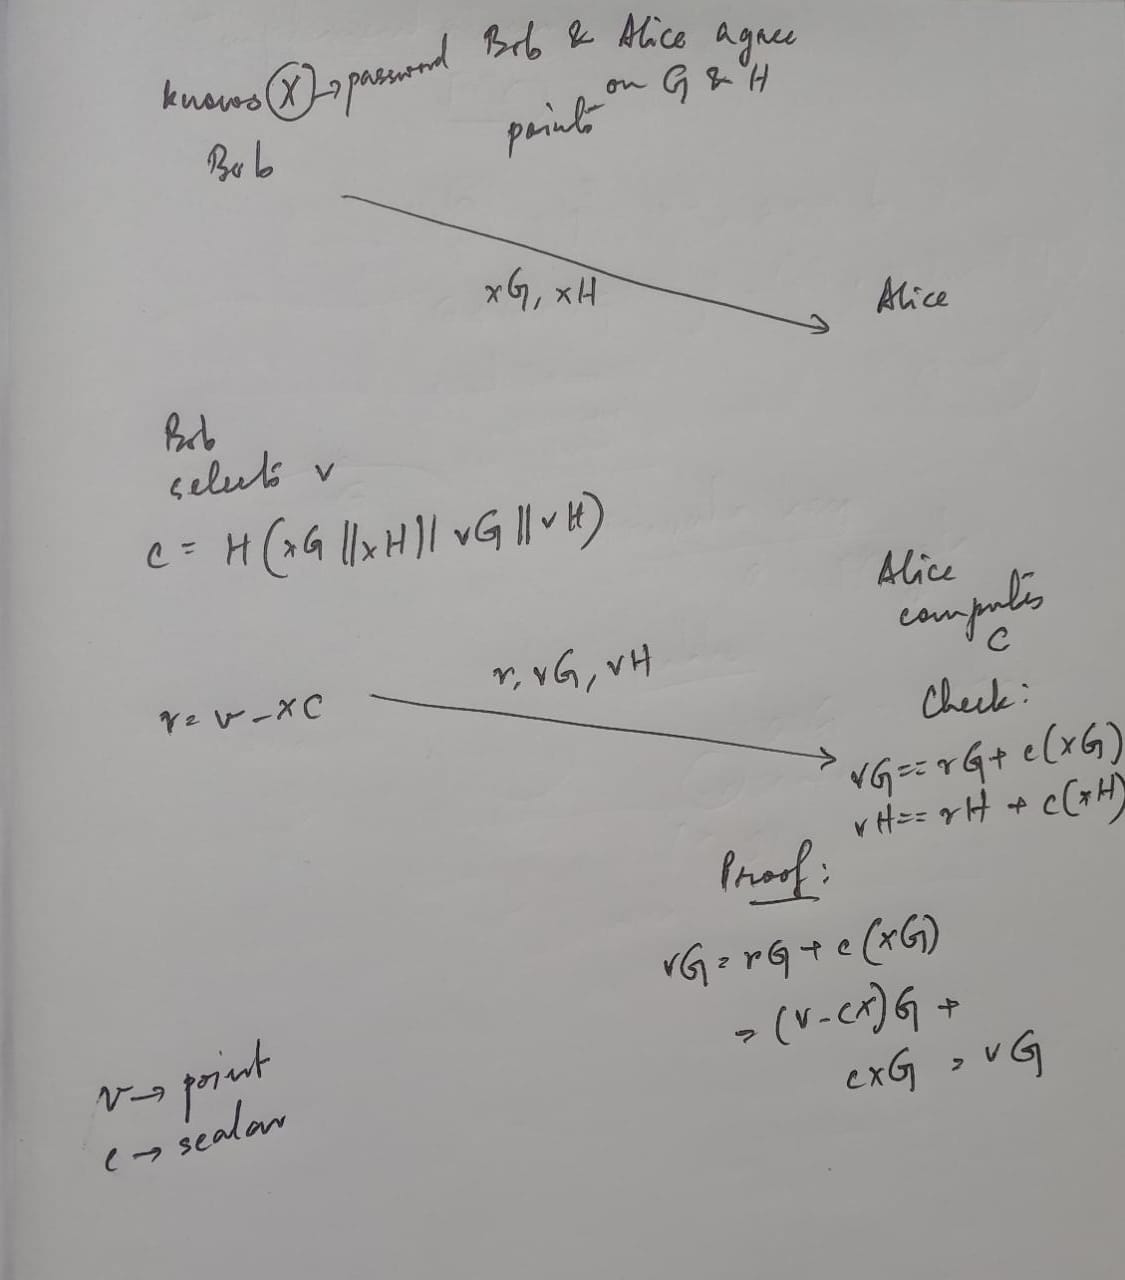 knows (x) → password
Bob & Alice agree
on G & H
points
Bob
xG, xH
Alice
Bob
selects v
c = H (xG || xH || vG || vH)
Alice
computes
C
r, vG, vH
r = v - xC
Check:
vG == rG + c(xG)
vH == rH + c(xH)
Proof:
vG = rG + c(xG)
= (v - cx)G +
cxG = vG
v → point
c → scalar